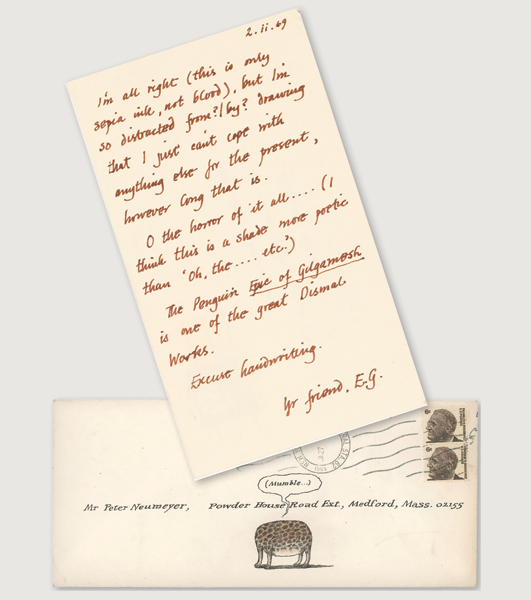 2.ii.69
I'm all right (this is only
sepia ink, not blood), but I'm
so distracted from?/by? drawing
that I just can't cope with
anything else for the present,
however long that is.
O the horror of it all.... (I
think this is a shade more poetic
than 'Oh, the.... etc.')
The Penguin Epic of Gilgamesh
is one of the great Dismal
Works.
Excuse handwriting.
Yr friend, E.G.
(Mumble...)
Mr Peter Neumeyer, Powder House Road Ext., Medford, Mass. 02155